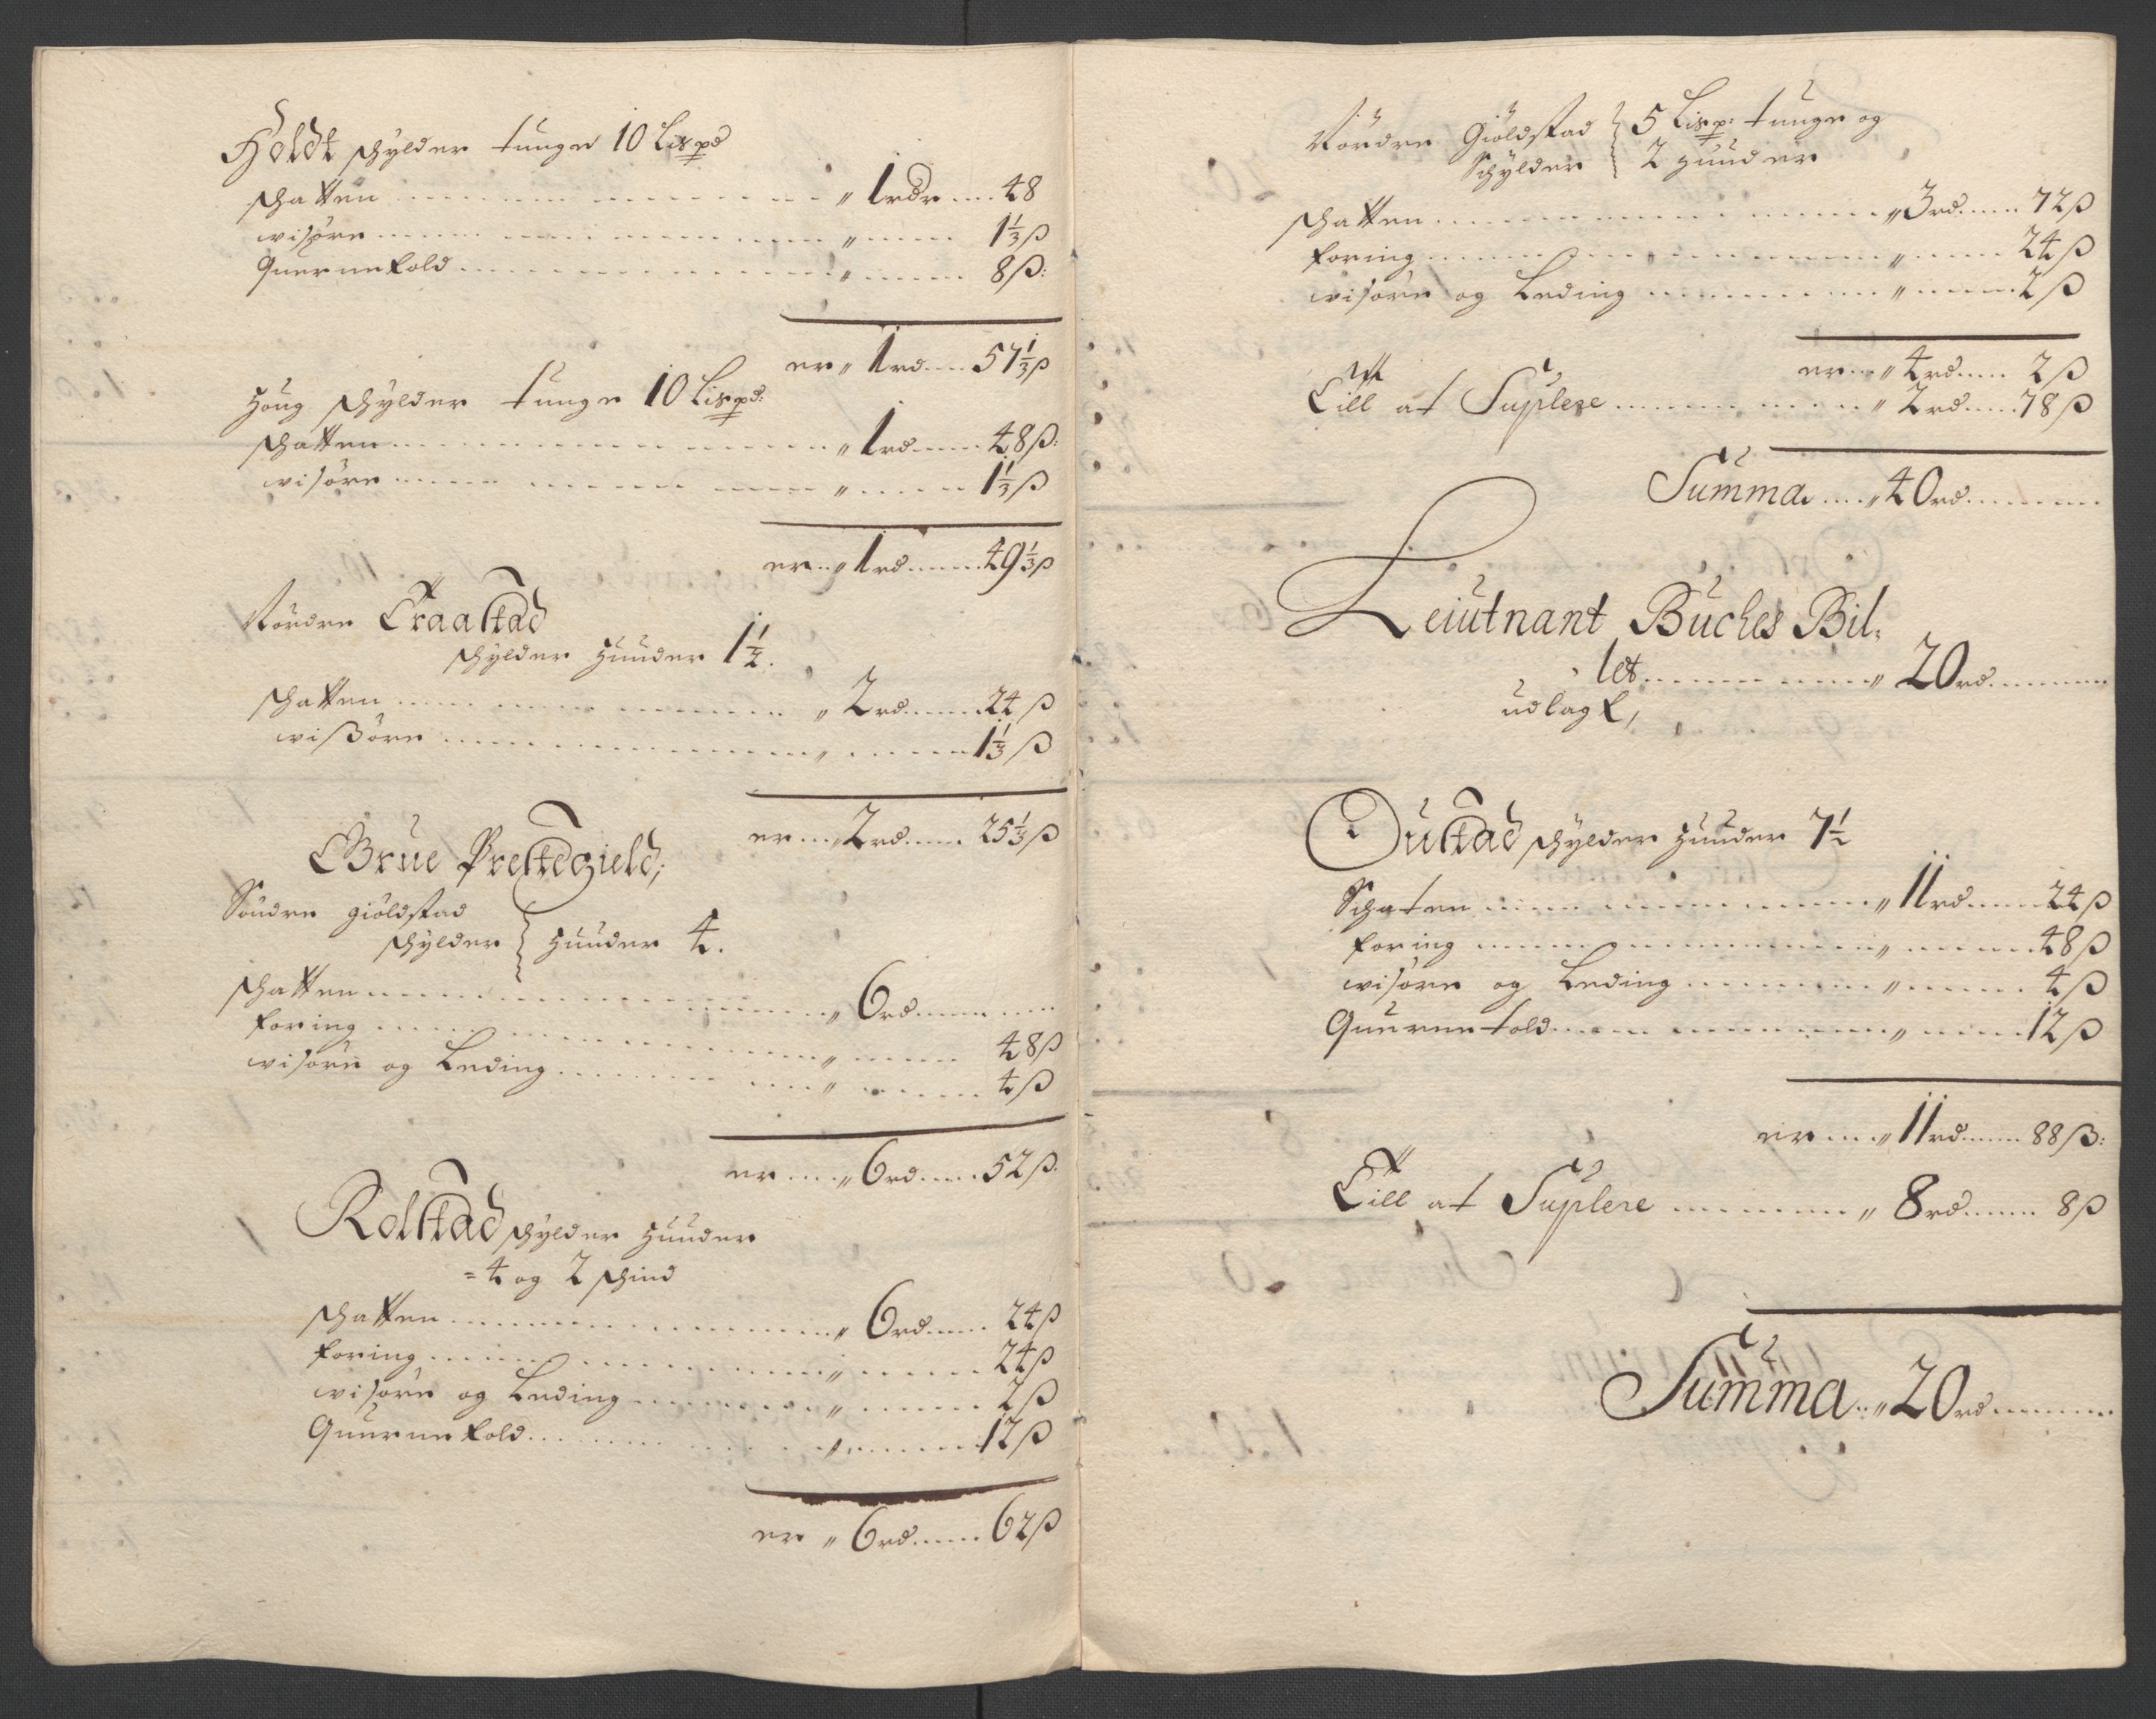 Holdt schylder tunge 10 Lispd
schatten ........ " 1 rdr .... 48
wisøre ........ " ...... 1⅓ ß
Quernetold ........ " ...... 8 ß:
er " 1 rd .... 57⅓ ß
Houg schylder tunge 10 Lispd:
schatten ........ " 1 rd ..... 48 ß:
wisøre ........ " ..... 1⅓ ß
er .. " 1 rd ...... 49⅓ ß
Nordre Traastad
schylder Huuder 1½.
schatten ........ " 2 rd ...... 24 ß
wißøre ........ " ...... 1⅓ ß
er .... 2 rd ..... 25⅓ ß
Grue Prestegield;
Søndre giøldstad
schylder Huuder 4.
schatten ........ " 6 rd ........
foring ........ " ...... 48 ß
wisøre og Leding ........ " ...... 4 ß
er .... " 6 rd ..... 52 ß.
Rolstad schylder Huuder
= 4 og 2 schind
schatten ........ " 6 rd ..... 24 ß
foring ........ " ...... 24 ß
wisøre og Leding ........ " ...... 2 ß
Quernetold ........ " ...... 12 ß
er " 6 rd ..... 62 ß
Nordre Giøldstad 5 Lisp: tunge og
Schylder 2 Huuder
schatten ........ " 3 rd ..... 72 ß
foring ........ " ..... 24 ß
wisøre og Leding ........ " ..... 2 ß
er ... " 4 rd ..... 2 ß
Till at Suplere ........ " 2 rd ..... 78 ß
Summa .... " 40 rd ........
Leiutnant Buches Bil,
let ........ " 20 rd ........
udlagt,
Oustad schylder Huuder 7½
Schatten ........ " 11 rd ..... 24 ß
foring ........ " ..... 48 ß
wisøre og Leding ........ " ..... 4 ß
Quernetold ........ " ..... 12 ß
er .... " 11 rd ..... 88 ß:
Till at Suplere ........ " 8 rd ..... 8 ß
Summa .. " 20 rd ........